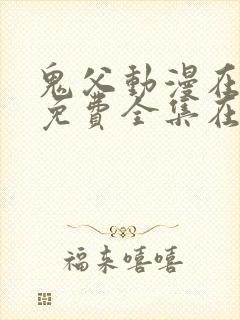 鬼父動漫在
免費全集在
福来嘻嘻